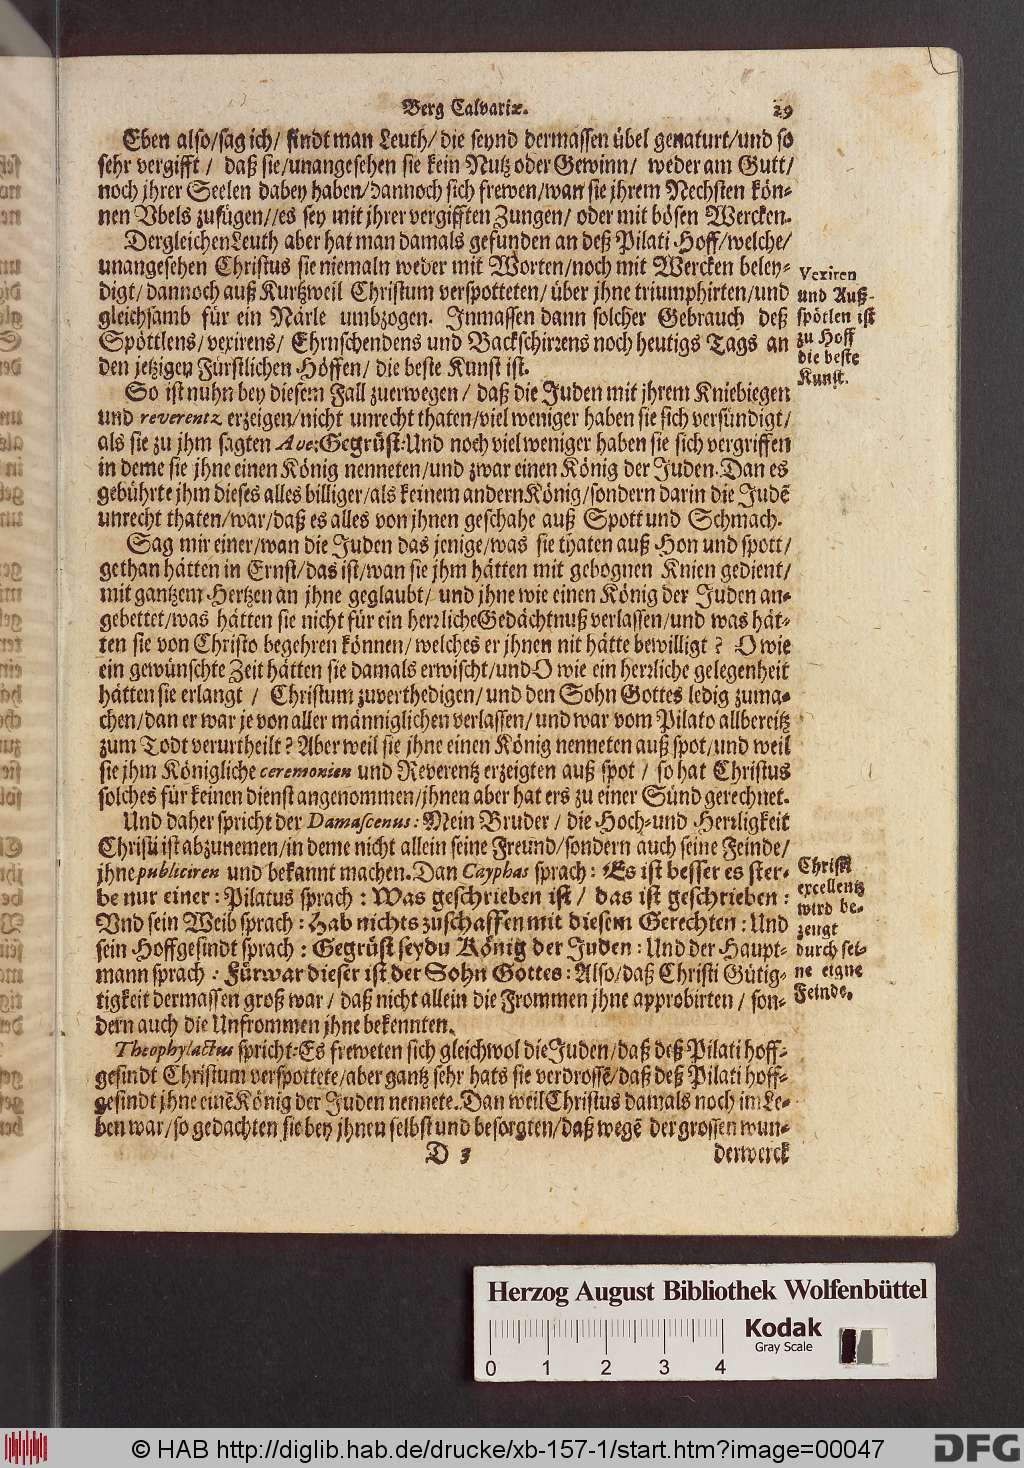 Berg Calvariæ. 29
Eben also/sag ich/ findt man Leuth/ die seynd dermassen übel genaturt/und so
sehr vergifft / daß sie/unangesehen sie kein Nutz oder Gewinn/ weder am Gutt/
noch jhrer Seelen dabey haben/dannoch sich frewen/wan sie jhrem Nechsten kön-
nen Vbels zufügen//es sey mit jhrer vergifften Zungen/ oder mit bösen Wercken.
Dergleichen Leuth aber hat man damals gefunden an deß Pilati Hoff/welche/
unangesehen Christus sie niemaln weder mit Worten/noch mit Wercken beley-
digt/ dannoch auß Kurtzweil Christum verspotteten/ über jhne triumphirten/und
gleichsamb für ein Närle umbzogen. Inmassen dann solcher Gebrauch deß
Spöttlens/vexirens/ Ehrnschendens und Backschirrens noch heutigs Tags an
den jetzigen Fürstlichen Höffen/ die beste Kunst ist.
Vexiren
und Auß-
spötlen ist
zu Hoff
die beste
Kunst.
So ist nuhn bey diesem Fall zuerwegen / daß die Juden mit jhrem Kniebiegen
und reverentz erzeigen/nicht unrecht thaten/viel weniger haben sie sich versündigt/
als sie zu jhm sagten Ave: Gegrüst: Und noch viel weniger haben sie sich vergriffen
in deme sie jhne einen König nenneten/und zwar einen König der Juden. Dan es
gebührte jhm dieses alles billiger/als keinem andern König/sondern darin die Judē
unrecht thaten/war/daß es alles von jhnen geschahe auß Spott und Schmach.
Sag mir einer/wan die Juden das jenige/was sie thaten auß Hon und spott/
gethan hätten in Ernst/das ist/wan sie jhm hätten mit gebognen Knien gedient/
mit gantzem Hertzen an jhne geglaubt/ und jhne wie einen König der Juden an-
gebettet/was hätten sie nicht für ein herzliche Gedächtnuß verlassen/und was hät-
ten sie von Christo begehren können/welches er jhnen nit hätte bewilligt ? O wie
ein gewünschte Zeit hätten sie damals erwischt/und O wie ein herzliche gelegenheit
hätten sie erlangt / Christum zuverthedigen/und den Sohn Gottes ledig zuma-
chen/dan er war je von aller männiglichen verlassen/und war vom Pilato allbereitz
zum Todt verurtheilt ? Aber weil sie jhne einen König nenneten auß spot/und weil
sie jhm Königliche ceremonien und Reverentz erzeigten auß spot / so hat Christus
solches für keinen dienst angenommen/jhnen aber hat ers zu einer Sünd gerechnet.
Und daher spricht der Damascenus: Mein Bruder / die Hoch-und Herzligkeit
Christi ist abzunemen/in deme nicht allein seine Freund/sondern auch seine Feinde/
jhne publiciren und bekannt machen. Dan Cayphas sprach: Es ist besser es ster-
be nur einer: Pilatus sprach: Was geschrieben ist / das ist geschrieben:
Vnd sein Weib sprach: Hab nichts zuschaffen mit diesem Gerechten: Und
sein Hoffgesindt sprach: Gegrüst seydu König der Juden: Und der Haupt-
mann sprach: Fürwar dieser ist der Sohn Gottes: Also/daß Christi Gütig-
tigkeit dermassen groß war / daß nicht allein die Frommen jhne approbirten / son-
dern auch die Unfrommen jhne bekennten.
Christi
excellentz
wird be-
zeugt
durch sei-
ne eigne
Feinde.
Theophylactus spricht: Es freweten sich gleichwol die Juden/daß deß Pilati hoff-
gesindt Christum verspottete/aber gantz sehr hats sie verdrossē/daß deß Pilati hoff-
gesindt jhne einē König der Juden nennete. Dan weil Christus damals noch im Le-
ben war/so gedachten sie bey jhnen selbst und besorgten/daß wegē der grossen wun-
D 3 derwerck
Herzog August Bibliothek Wolfenbüttel
Kodak
Gray Scale
0 1 2 3 4
© HAB http://diglib.hab.de/drucke/xb-157-1/start.htm?image=00047
DFG